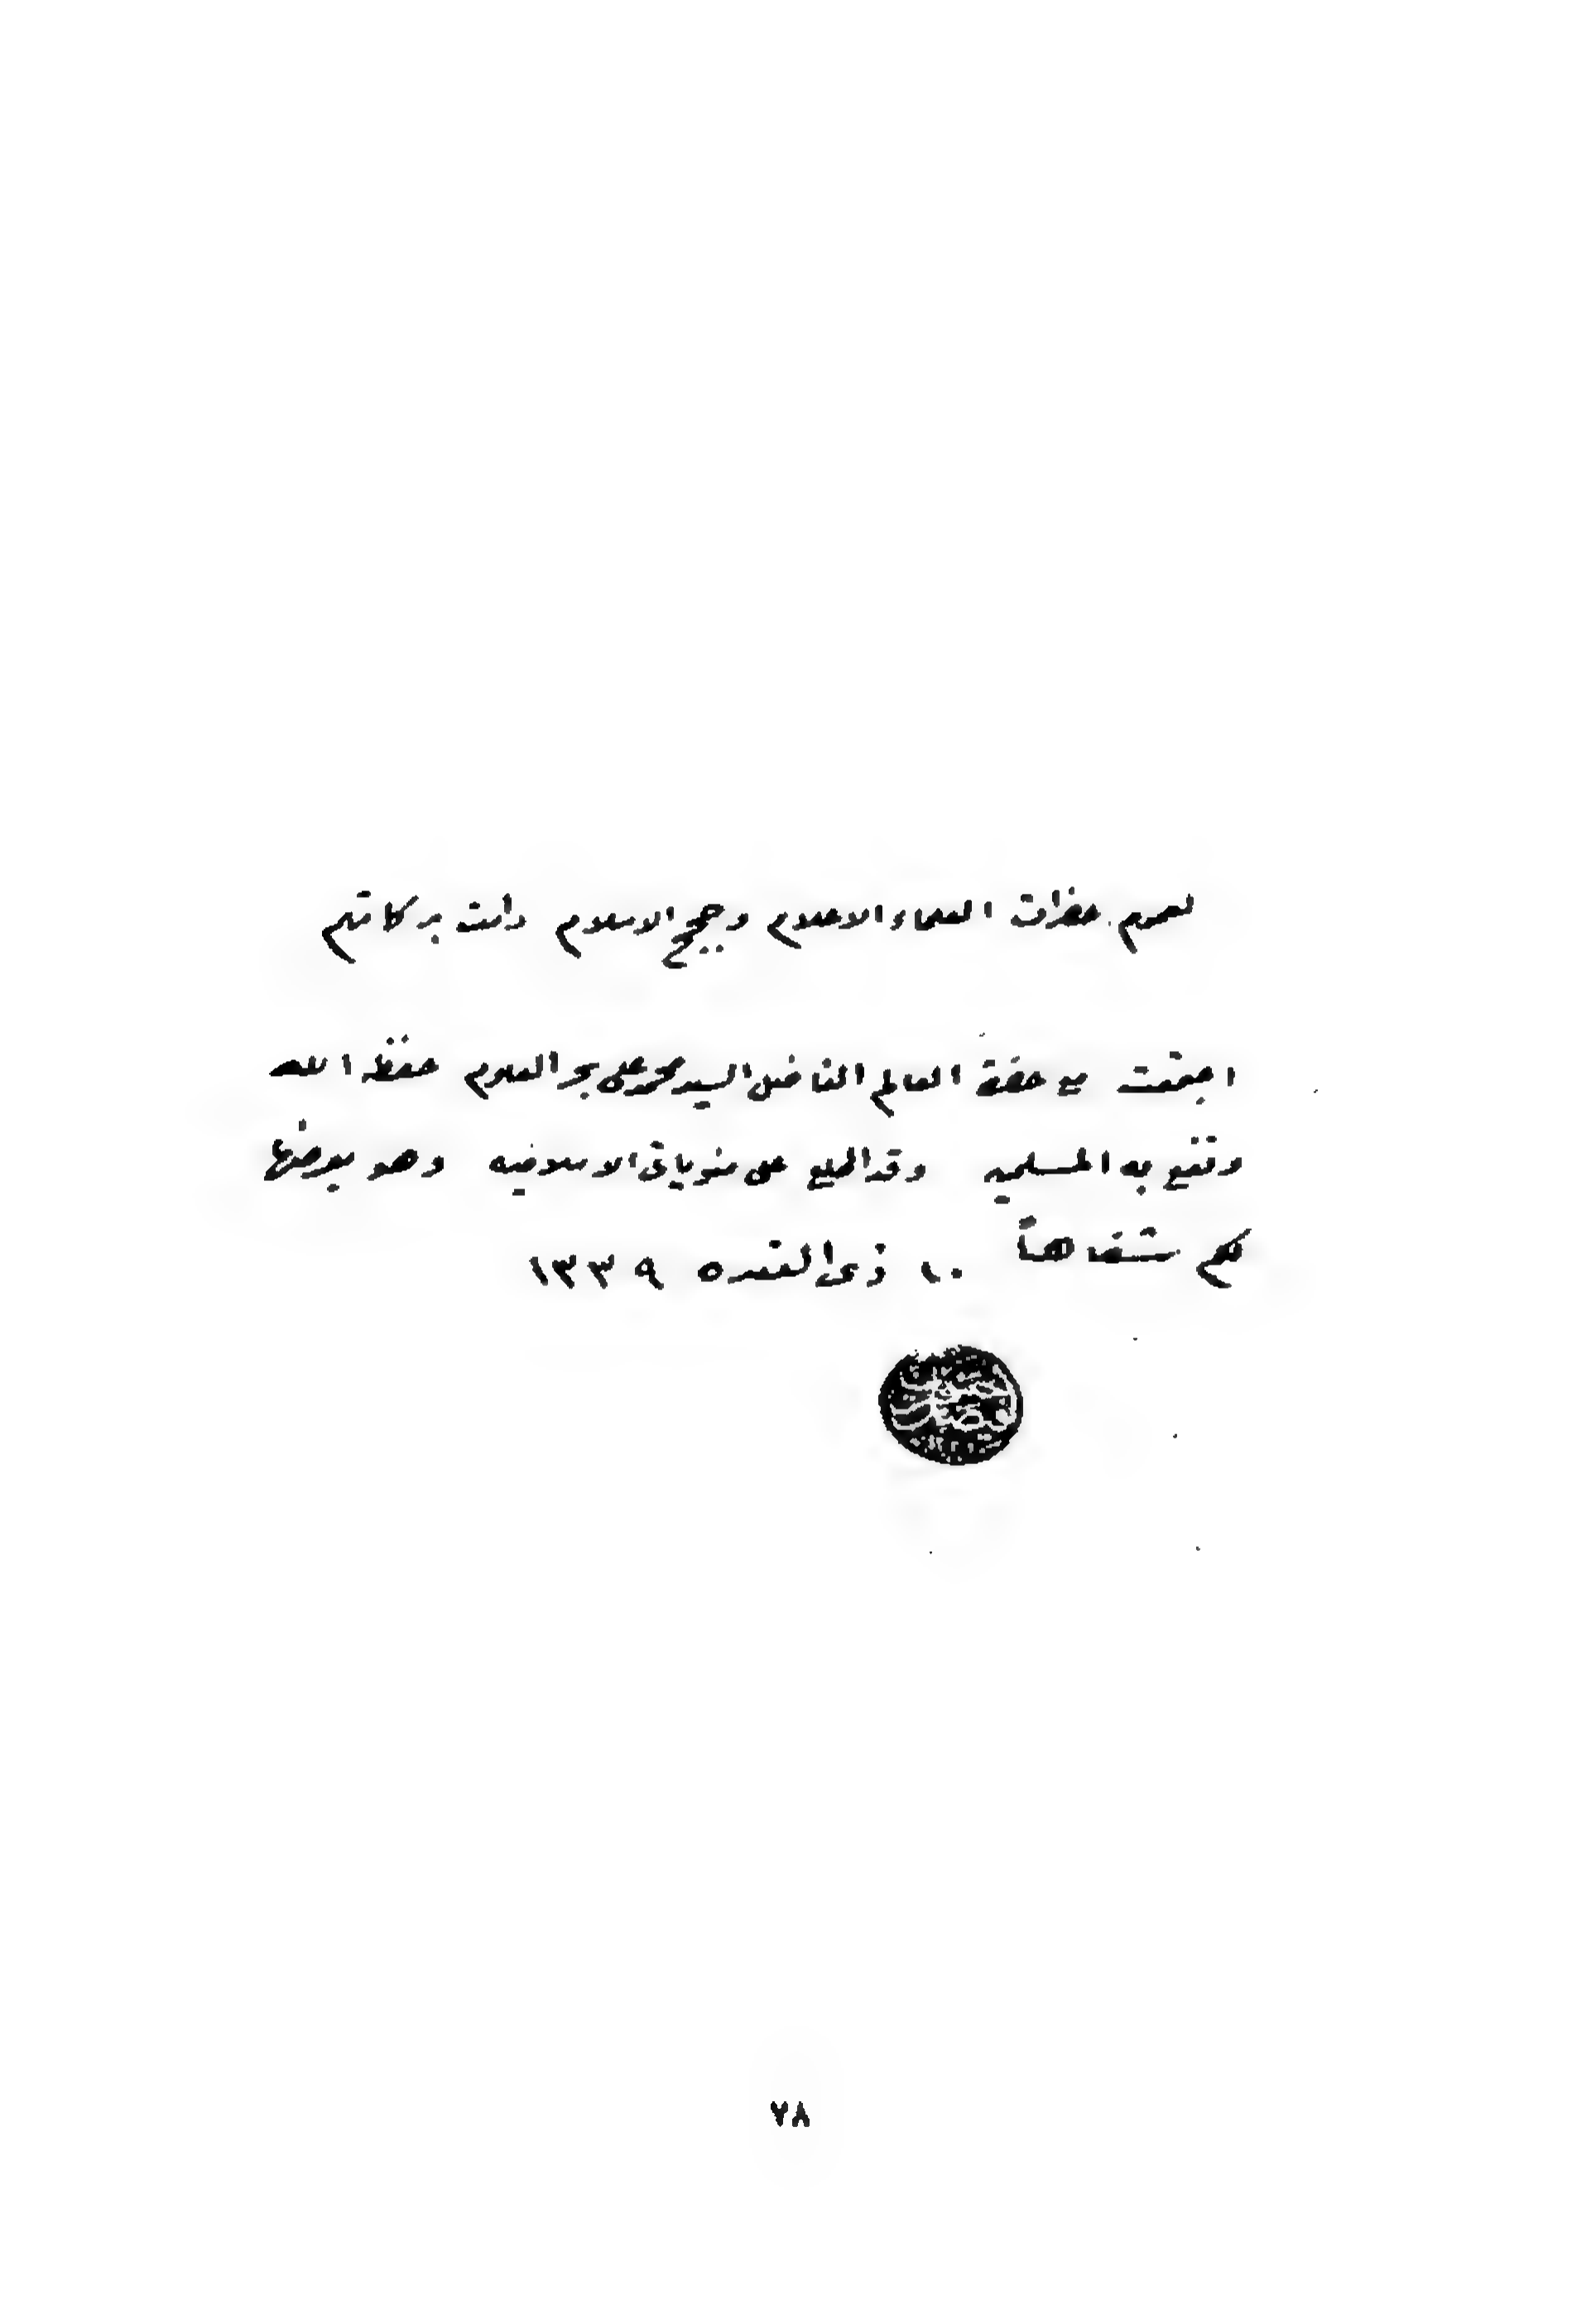 لعموم حضرات العلماء الاعلام وحجج الاسلام دامت بركاتهم
اجتمعت مع حضرة العالم الفاضل السيد محمد علي بحر العلوم حفظه الله
ونفع به المسلمين وقد اطلع على منوياتي الاسلاميه وهو يعرضها
لكم شفاهاً ١٠ ذي القعده ١٣٣٩
٧٨